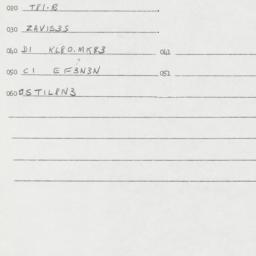 020 TRI-B
030 ZAVIS3S
040 DI KL80.MK83 041
050 CI EF3N3N 051
060 OSTIL8N3